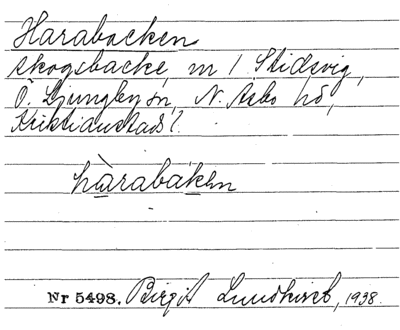 Harabacken
skogsbacke, m 1 Stidsvig,
Ö. Ljungby sn, N. Åsbo hd,
Kristianstads l.
hàrabaken
Nr 5498. Birgit Lundkvist, 1938.